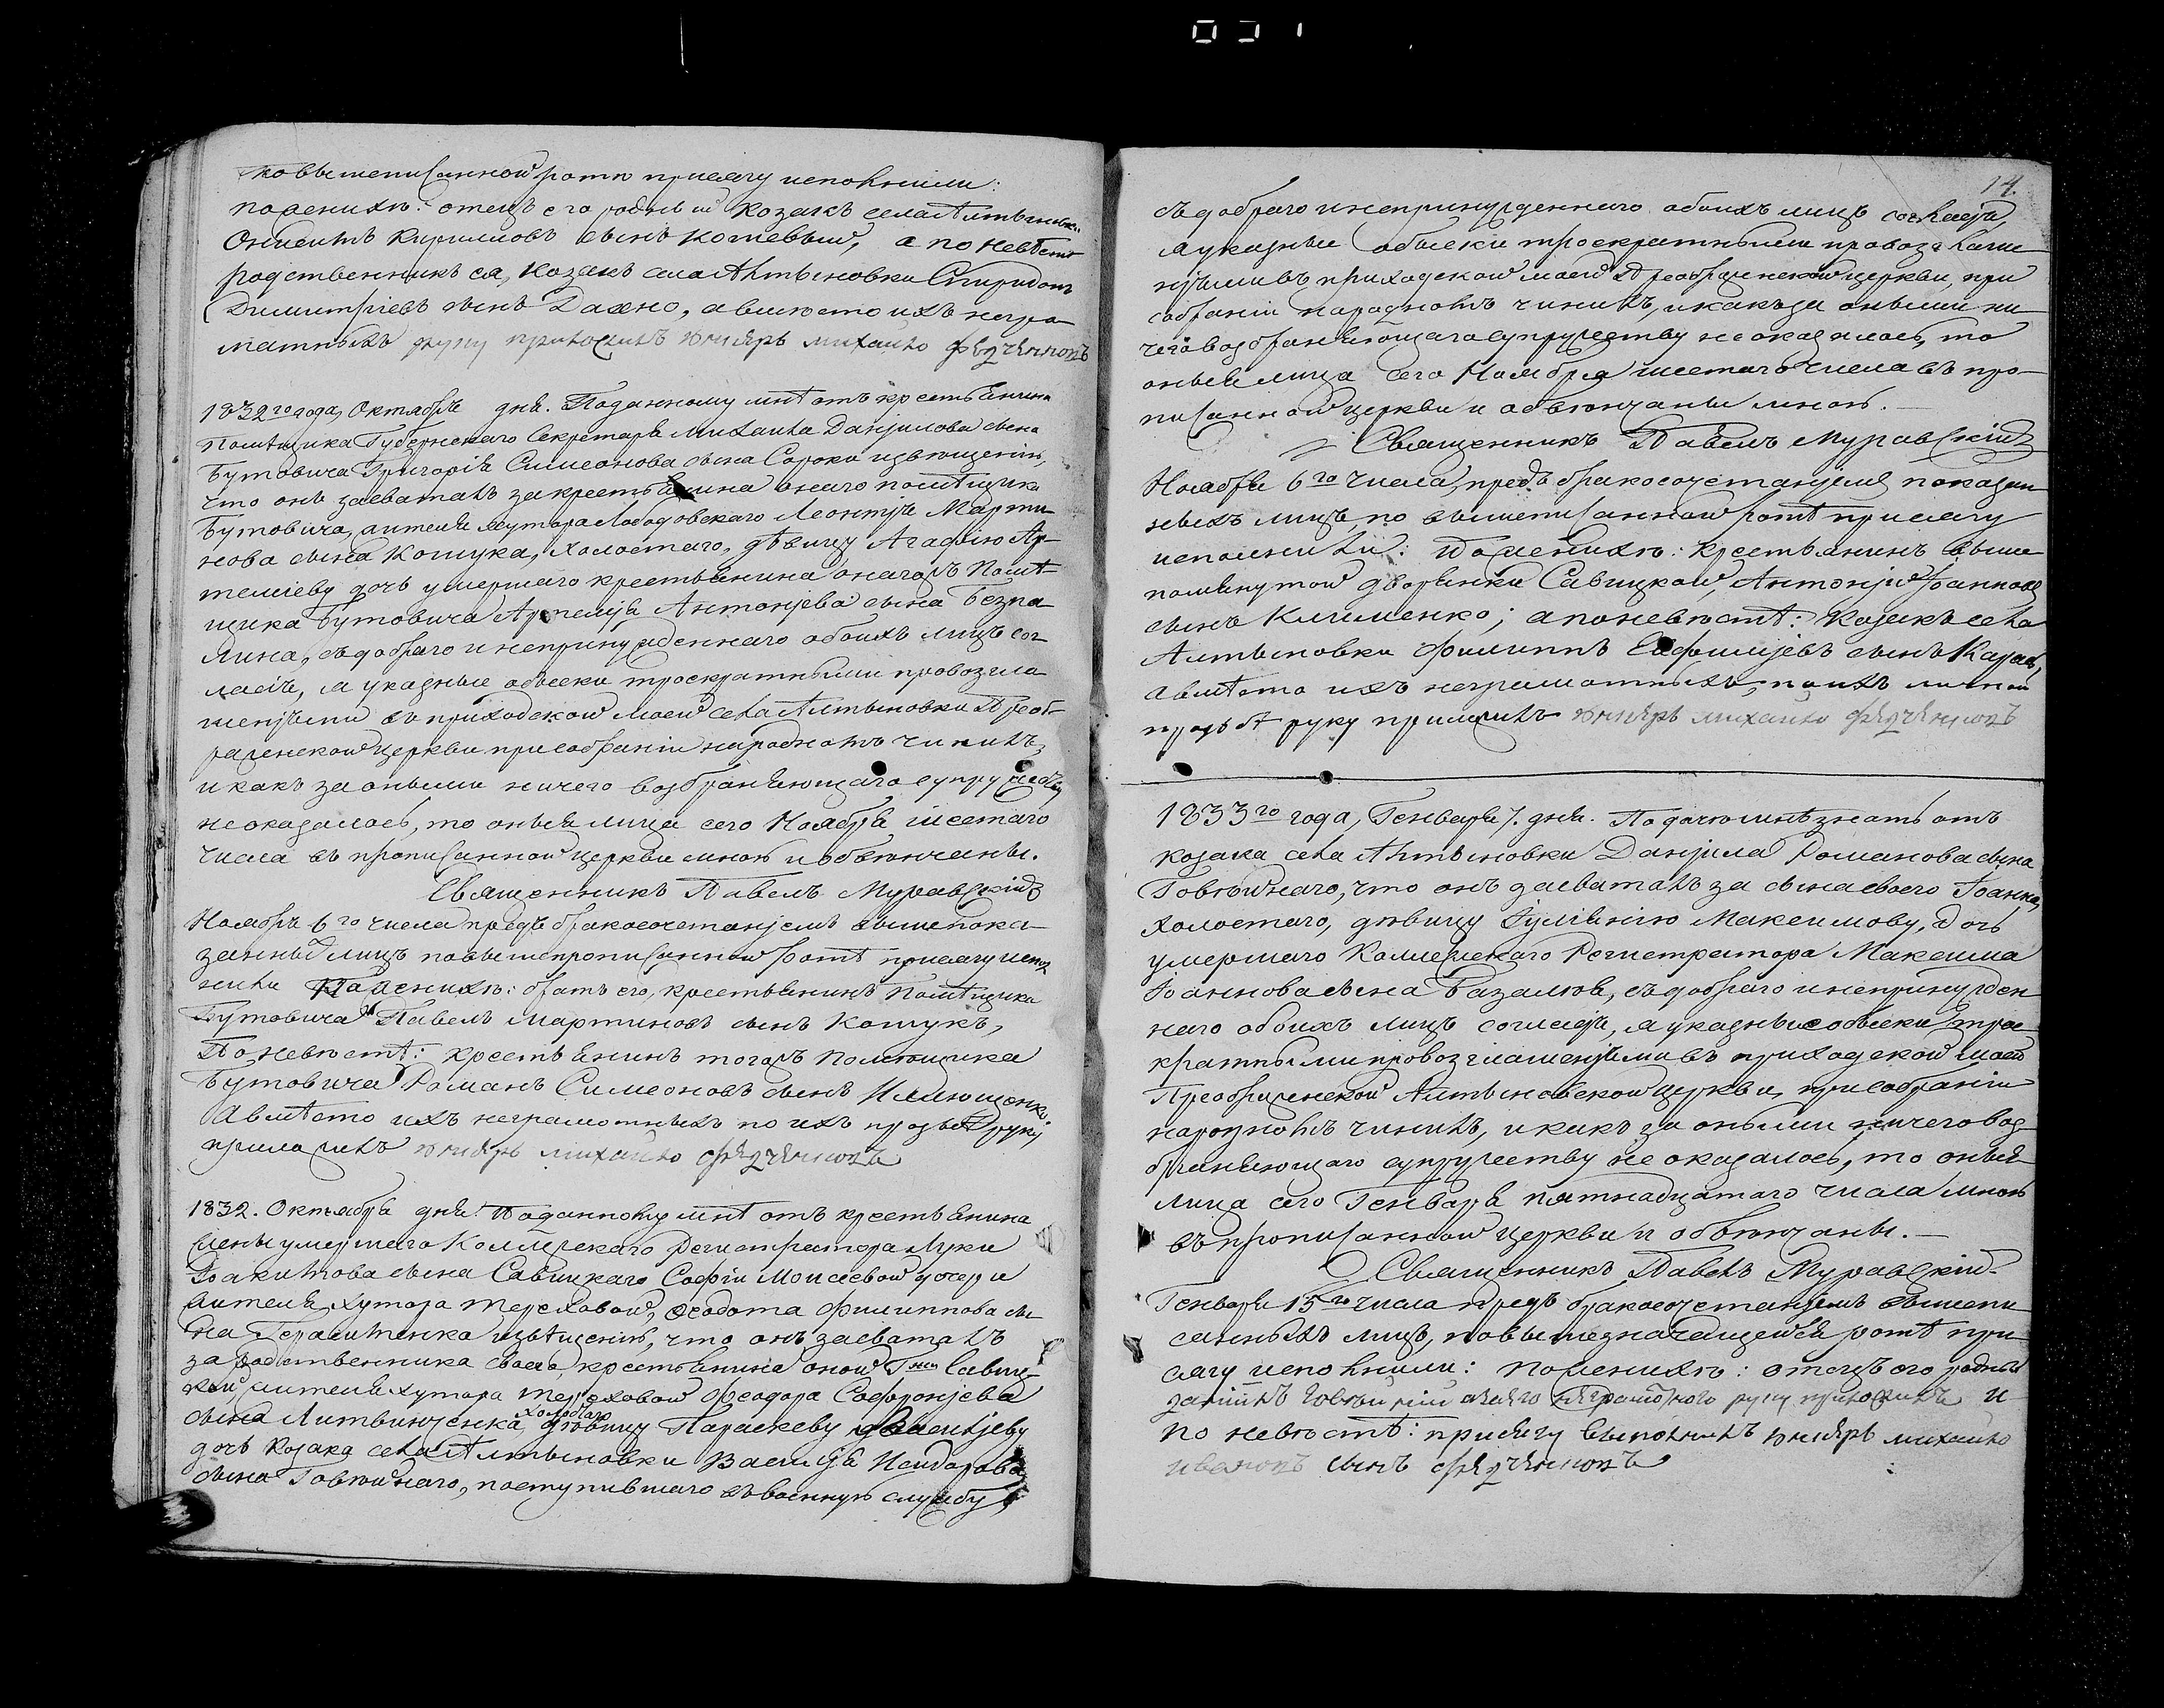 031
повышеписанной ротѣ присягу исполнили:
по женихѣ: отецъ его родный козакъ села Алтыновки
Онисимъ Кириловъ сынъ Кошевый, а по невѣстѣ
родственникъ ея, козакъ села Алтыновки Спиридонъ
Димитріевъ сынъ Дахно, а вмѣсто ихъ негра-
матныхъ руку приложилъ Михайло
1832го года, Октября дня. По данному мнѣ отъ крестьянина
помѣщика Губернскаго Секретаря Михаила Даніилова сына
Бутовича Григорія Симеонова сына Сороки извѣщенію,
что онъ засваталъ за крестьянина онаго помѣщика
Бутовича, жителя хутора Лободовскаго Леонтія Марти-
нова сына Кошука, холостаго, дѣвицу Агафію Ар-
темiеву дочь умершаго крестьянина онагожъ помѣ-
щика Бутовича Артемія Антоніева сына Безпа-
лина, съ добраго и непринужденнаго обоихъ лицъ сог-
ласія, я указные обыски троекратными провозгла-
шеніями въ приходской моей села Алтыновки Преоб-
раженской церкви при собраніи народномъ чинилъ,
и какъ за оными ничего возбраняющаго супружеству
не оказалось, то оныя лица сего Ноября шестаго
числа въ прописанной церкви мною и обвѣнчаны.
Священникъ Павелъ Муравскій
Ноября 6го числа предъ бракосочетаніемъ вышепока-
занныхъ лицъ по вышепрописанной ротѣ присягу испол-
нили По женихѣ: братъ его, крестьянинъ помѣщика
Бутовича Павелъ Мартиновъ сынъ Кошукъ,
По невѣстѣ: крестьянинъ тогожъ помѣщика
Бутовича Романъ Симеоновъ сынъ Иллющенко,
а вмѣсто ихъ неграмотныхъ по ихъ прозьбѣ руку
приложилъ Михайло
1832. Октября дня. По данному мнѣ отъ крестьянина
жены умершаго Коллежскаго Регистратора Луки
Іоакимова сына Савицкаго Софіи Моисеевой дочери
жителя хутора Тереховой, Феодота Филиппова сы-
на Герасименка извѣщенію, что онъ засваталъ
за родственника своего, крестьянина оной Гжи Савиц-
кой жителя хутора Тереховой Феодора Софроніева
сына Литвинченка, холостаго дѣвицу Параскеву Василіеву
дочь козака села Алтыновки Василія Исидорова
сына Говѣйнаго, поступившаго въ военную службу,
14.
съ добраго и непринужденнаго обоихъ лицъ согласія,
я указные обыски троекратными провозглаше-
ніями въ приходской моей Преображенской церкви, при
собраніи народномъ чинилъ, и какъ за оными ни-
чего возбраняющаго супружеству не оказалось, то
оныя лица сего Ноября шестаго числа въ про-
писанной церкви и обвѣнчаны мною.
Священникъ Павелъ Муравскій
Ноября 6го числа, предъ бракосочетаніемъ показан-
ныхъ лицъ, по вышеписанной ротѣ присягу
исполнили: По женихѣ: крестьянинъ выше-
помянутой дворянки Савицкой, Антоній Іоанновъ
сынъ Клименко; а по невѣстѣ: козакъ села
Алтыновки Филиппъ Евфиміевъ сынъ
а вмѣсто ихъ неграмотныхъ, по ихъ личной
прозьбѣ руку приложилъ Михайло
1833го года, Генваря 7. дня. Подаютъ мнѣ знать отъ
козака села Алтыновки Даніила Романова сына
Говѣйнаго, что онъ засваталъ за сына своего Іоанна,
холостаго, дѣвицу Іуліянію Максимову, дочь
умершаго Коллежскаго Регистратора Максима
Іоаннова сына Базалѣя, съ добраго и непринужден-
наго обоихъ лицъ согласія, я указные обыски трое-
кратными провозглашеніями въ приходской моей
Преображенской Алтыновской церкви, при собраніи
народномъ чинилъ, и какъ за оными ничего воз-
браняющаго супружеству не оказалось, то оныя
лица сего Генваря пятнадцатаго числа мною
въ прописанной церкви и обвѣнчаны.
Священникъ Павелъ Муравскій
Генваря 15го числа предъ бракосочетаніемъ вышепи-
санныхъ лицъ, по вышезначащейся ротѣ при-
сягу исполнили: по женихѣ: отецъ его родный
неграмотного руку приложилъ и
по невѣстѣ: присягу выполнилъ Михайло
сынъ